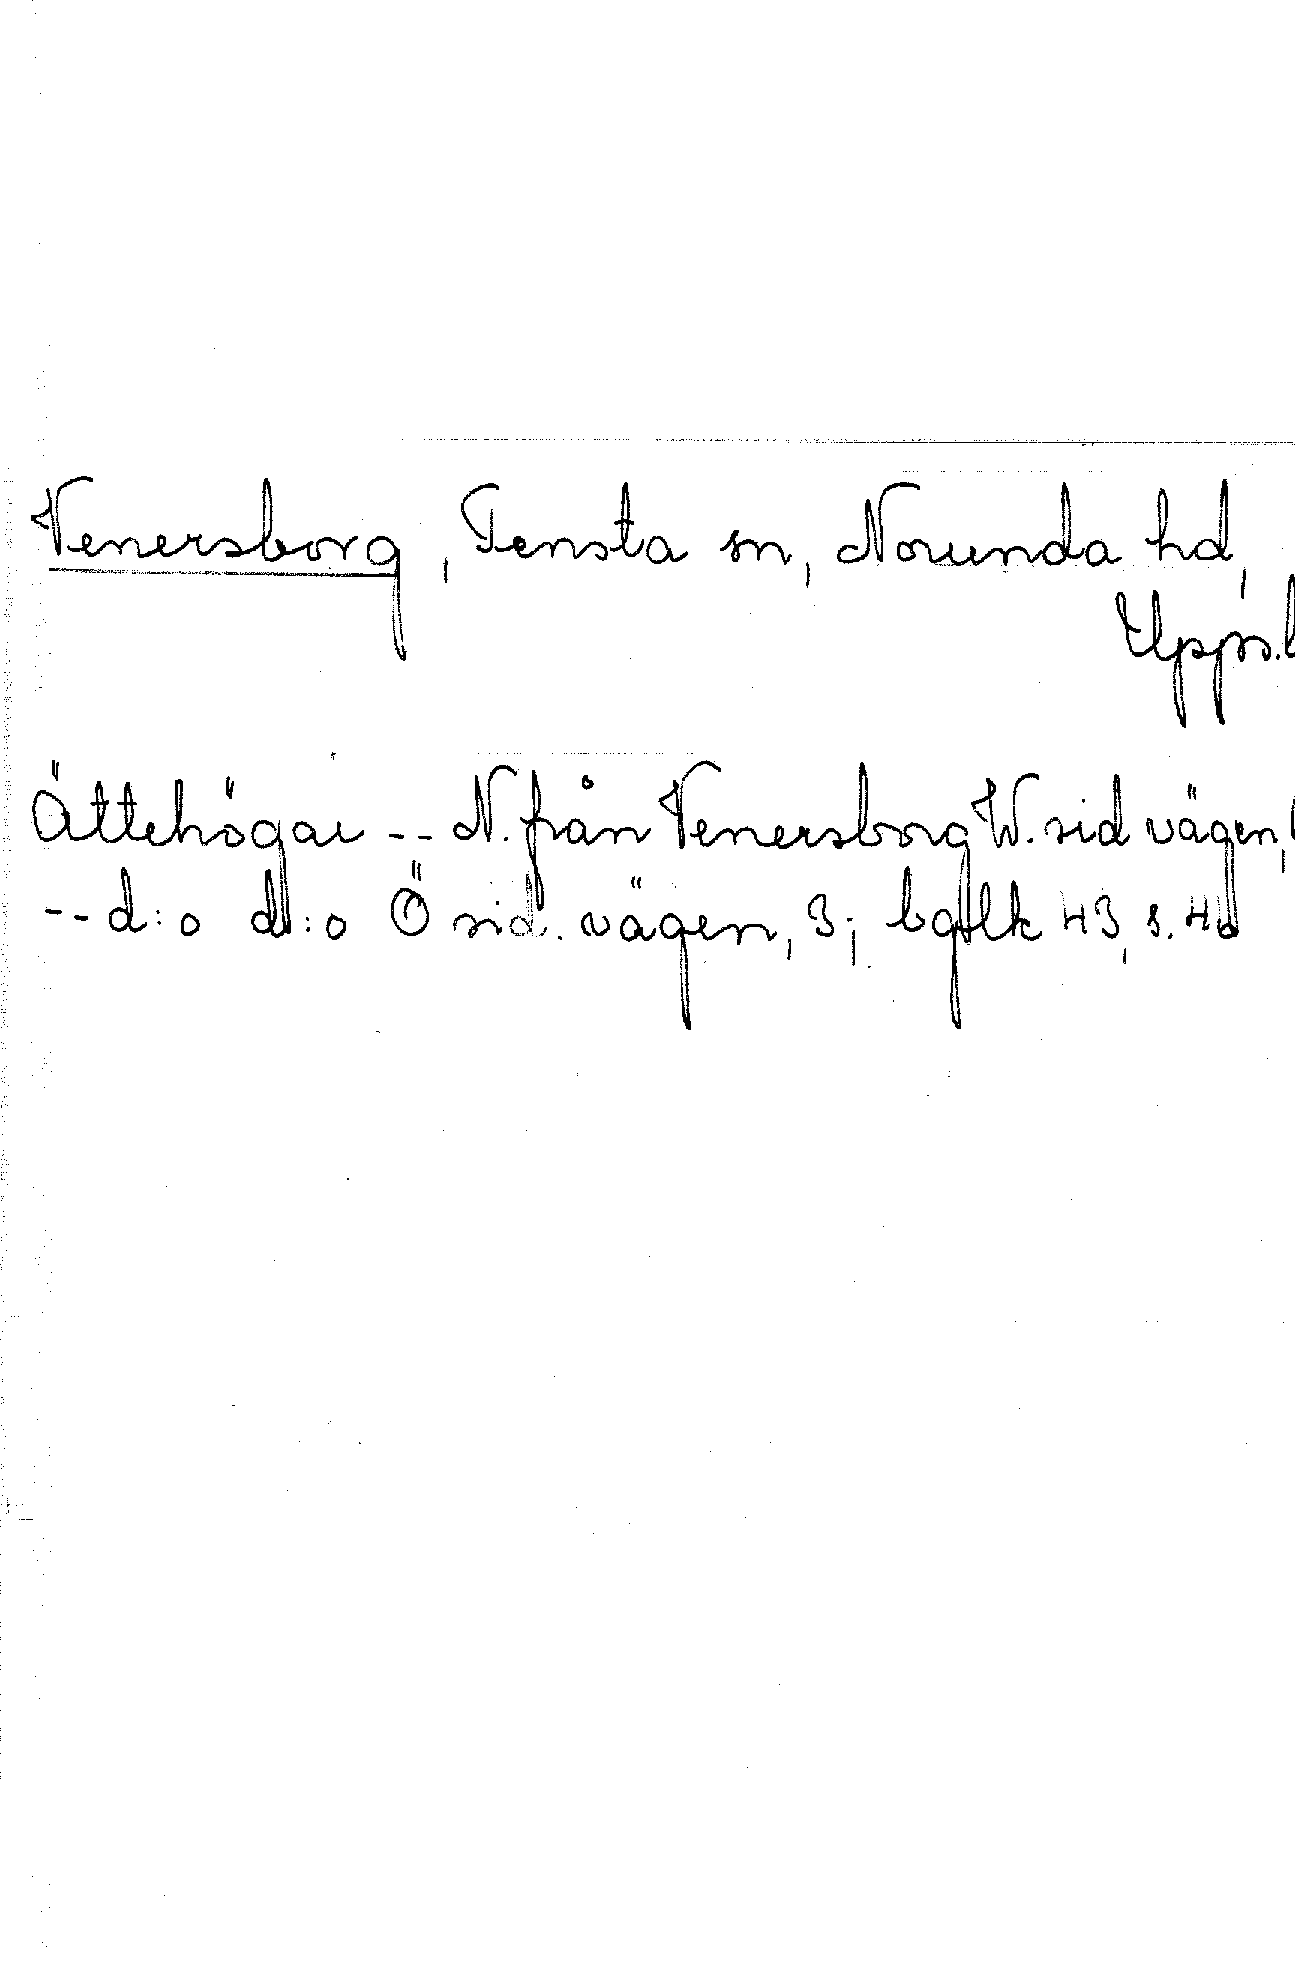 Venersborg, Tensta sn, Norunda hd,
Upps.l
Ättehögar -- N. från Venersborg W. sid vägen,
-- d:o d:o Ö sid. vägen, 3; bgtlk 43, s. 4